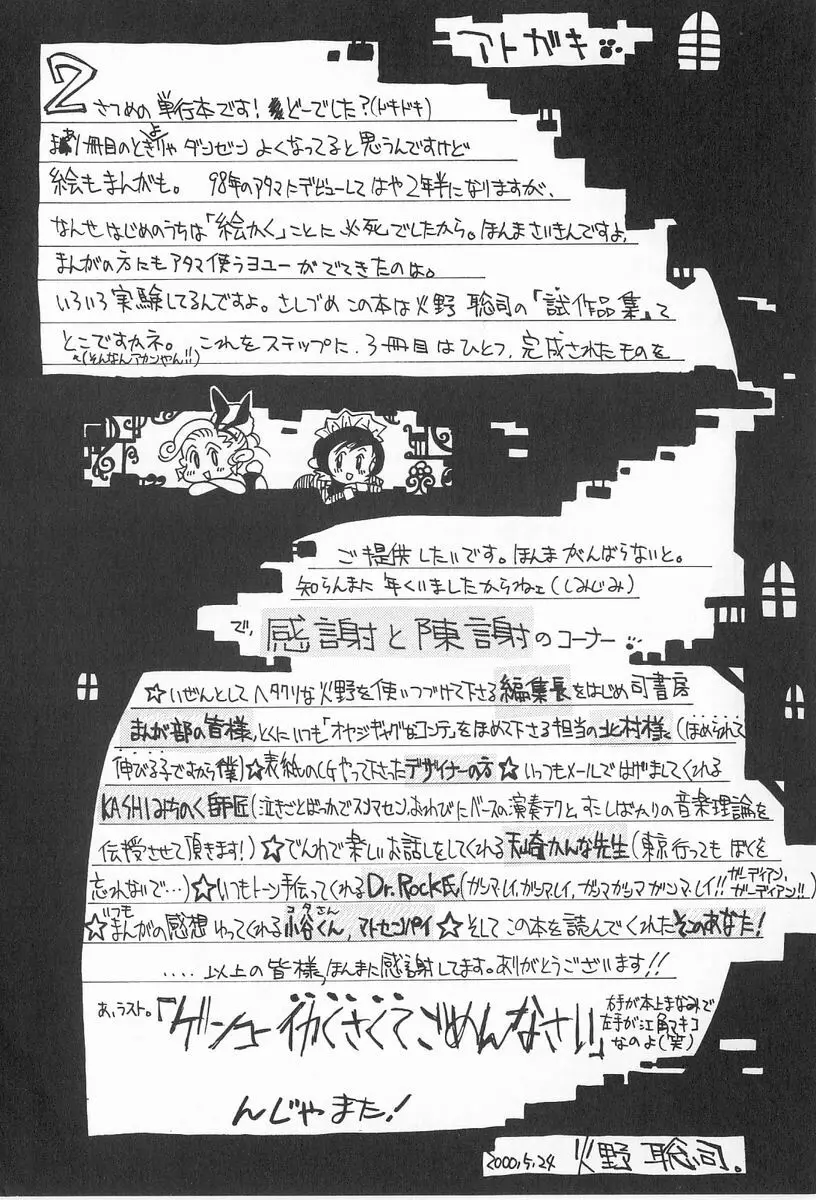 アトガキ
2さつめの単行本です! どーでした?(ドキドキ)
1冊目のときよりゃ ダンゼン よくなってると思うんですけど
絵もまんがも。 98年のアタマにデビューして はや2年半になりますが、
なんせ はじめのうちは「絵かく」ことに 必死でしたから。ほんまさいきんですよ、
まんがの方にもアタマ使うヨユーがでてきたのは。
いろいろ実験してるんですよ。さしづめ この本は火野 聡司の「試作品集」て
とこですかネ。 これをステップに、3冊目はひとつ、完成されたものを
(そんなんアカンやん!!)
ご提供したいです。ほんま がんばらないと。
知らんまに 年くいましたからねェ(しみじみ)
で、感謝と陳謝のコーナー
☆いぜんとしてヘタクソな火野を使いつづけて下さる編集長をはじめ司書房
まんが部の皆様、とくにいつも「オヤジギャグなコンテ」をほめて下さる担当の北村様(ほめられて
伸びる子ですから僕)☆表紙のCGやって下さったデザイナーの方☆いっつもメールではげましてくれる
KASHIみちのく師匠(泣きごとばっかでスンマセン。おわびにベースの演奏テクと、すこしばかりの音楽理論を
伝授させて頂きます!)☆でんわで楽しいお話しをしてくれる天崎かんな先生(東京行っても ぼくを
忘れないで…)☆いつもトーン手伝ってくれるDr.Rock氏(ガンマ・レイ、ガンマレイ、ガンマガンマ ガンマ・レイ!!ガーディアン、ガーディアン!!)
☆いつもまんがの感想 ゆってくれる小谷くん、マトセンパイ☆そして この本を読んでくれたそこのあなた!
コタさん
....以上の皆様、ほんまに感謝してます。ありがとうございます!!
あ、ラスト。「ゲンコーイカくさくてごめんなさい」
右手が本上まなみで
左手が江角マキコ
なのよ(笑)
んじゃまた!
2000,5,24 火野 聡司。